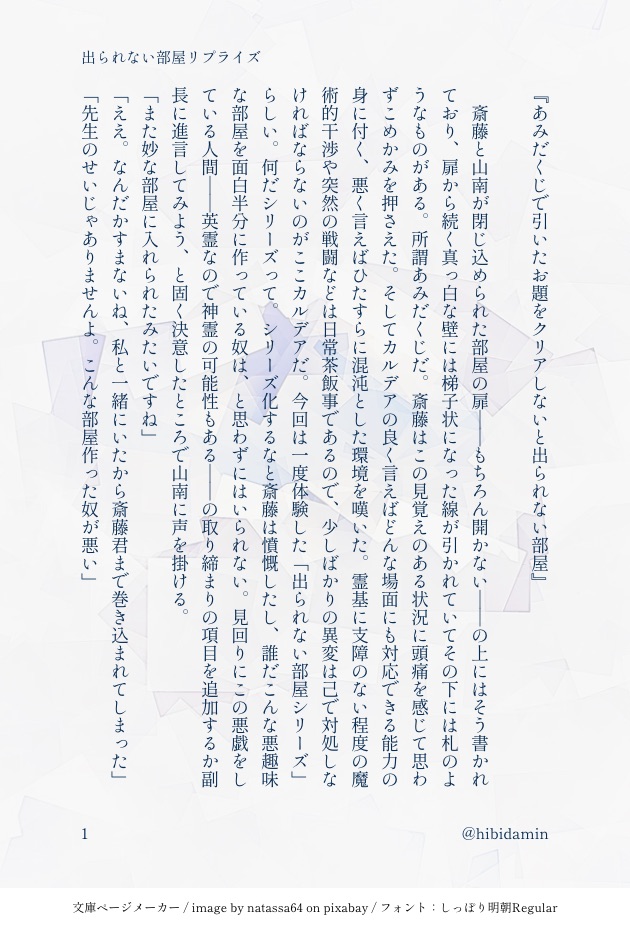 出られない部屋リプライズ
『あみだくじで引いたお題をクリアしないと出られない部屋』
斎藤と山南が閉じ込められた部屋の扉――もちろん開かない――の上にはそう書かれ
ており、扉から続く真っ白な壁には梯子状になった線が引かれていてその下には札のよ
うなものがある。所謂あみだくじだ。斎藤はこの見覚えのある状況に頭痛を感じて思わ
ずこめかみを押さえた。そしてカルデアの良く言えばどんな場面にも対応できる能力の
身に付く、悪く言えばひたすらに混沌とした環境を嘆いた。霊基に支障のない程度の魔
術的干渉や突然の戦闘などは日常茶飯事であるので、少しばかりの異変は己で対処しな
ければならないのがここカルデアだ。今回は一度体験した「出られない部屋シリーズ」
らしい。何だシリーズって。シリーズ化するなと斎藤は憤慨したし、誰だこんな悪趣味
な部屋を面白半分に作っている奴は、と思わずにはいられない。見回りにこの悪戯をし
ている人間――英霊なので神霊の可能性もある――の取り締まりの項目を追加するか副
長に進言してみよう、と固く決意したところで山南に声を掛ける。
「また妙な部屋に入れられたみたいですね」
「ええ。なんだかすまないね、私と一緒にいたから斎藤君まで巻き込まれてしまった」
「先生のせいじゃありませんよ。こんな部屋作った奴が悪い」
1
@hibidamin
文庫ページメーカー / image by natassa64 on pixabay / フォント：しっぽり明朝Regular